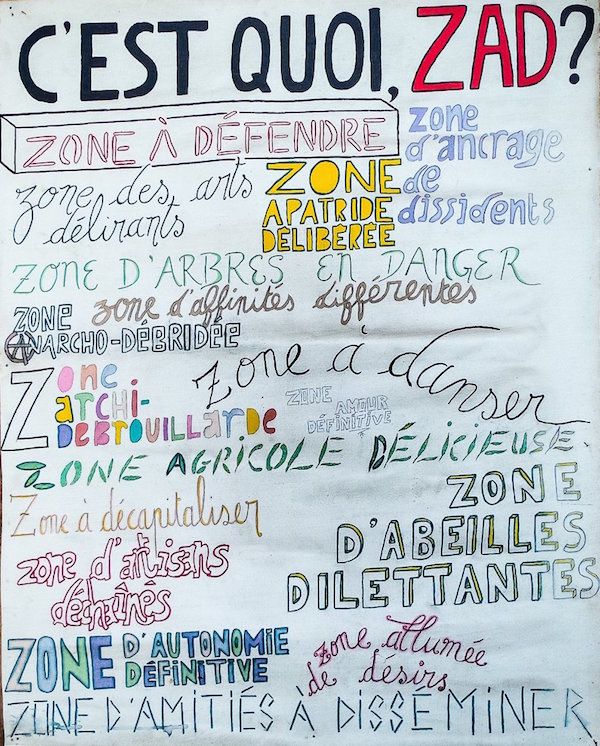 C'EST QUOI, ZAD?
ZONE À DÉFENDRE
zone
d'ancrage
de
dissidents
zone des arts
délirants
ZONE
APATRIDE
DÉLIBÉRÉE
ZONE D'ARBRES EN DANGER
zone d'affinités différentes
ZONE
ANARCHO-DÉBRIDÉE
Zone à danser
Zone
archi-
debrouillarde
ZONE
AMOUR
DÉFINITIVE
ZONE AGRICOLE DÉLICIEUSE
Zone à décapitaliser
ZONE
D'ABEILLES
DILETTANTES
zone d'artisans
déchaînés
ZONE D'AUTONOMIE
DÉFINITIVE
zone allumée
de désirs
ZONE D'AMITIÉS À DISSÉMINER